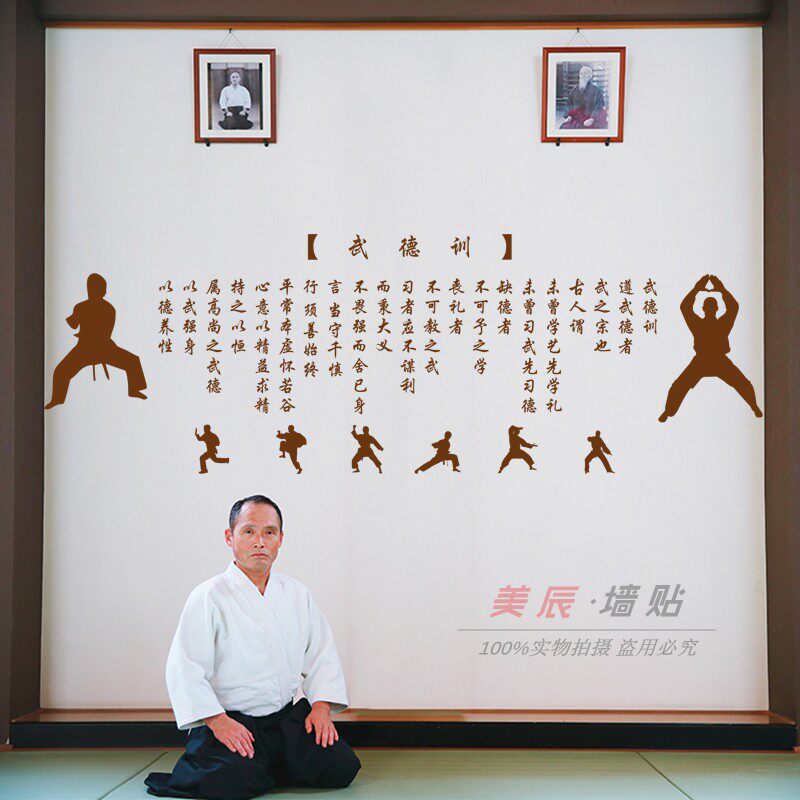 【武德训】
武德训
道武德者
武之宗也
古人谓
未曾学艺先学礼
未曾习武先习德
缺德者
不可予之学
丧礼者
不可教之武
习者应不谋利
而秉大义
不畏强而舍己身
言当守千慎
行须善始终
平常本虚怀若谷
心意以精益求精
持之以恒
属高尚之武德
以武强身
以德养性
美辰·墙贴
100%实物拍摄 盗用必究